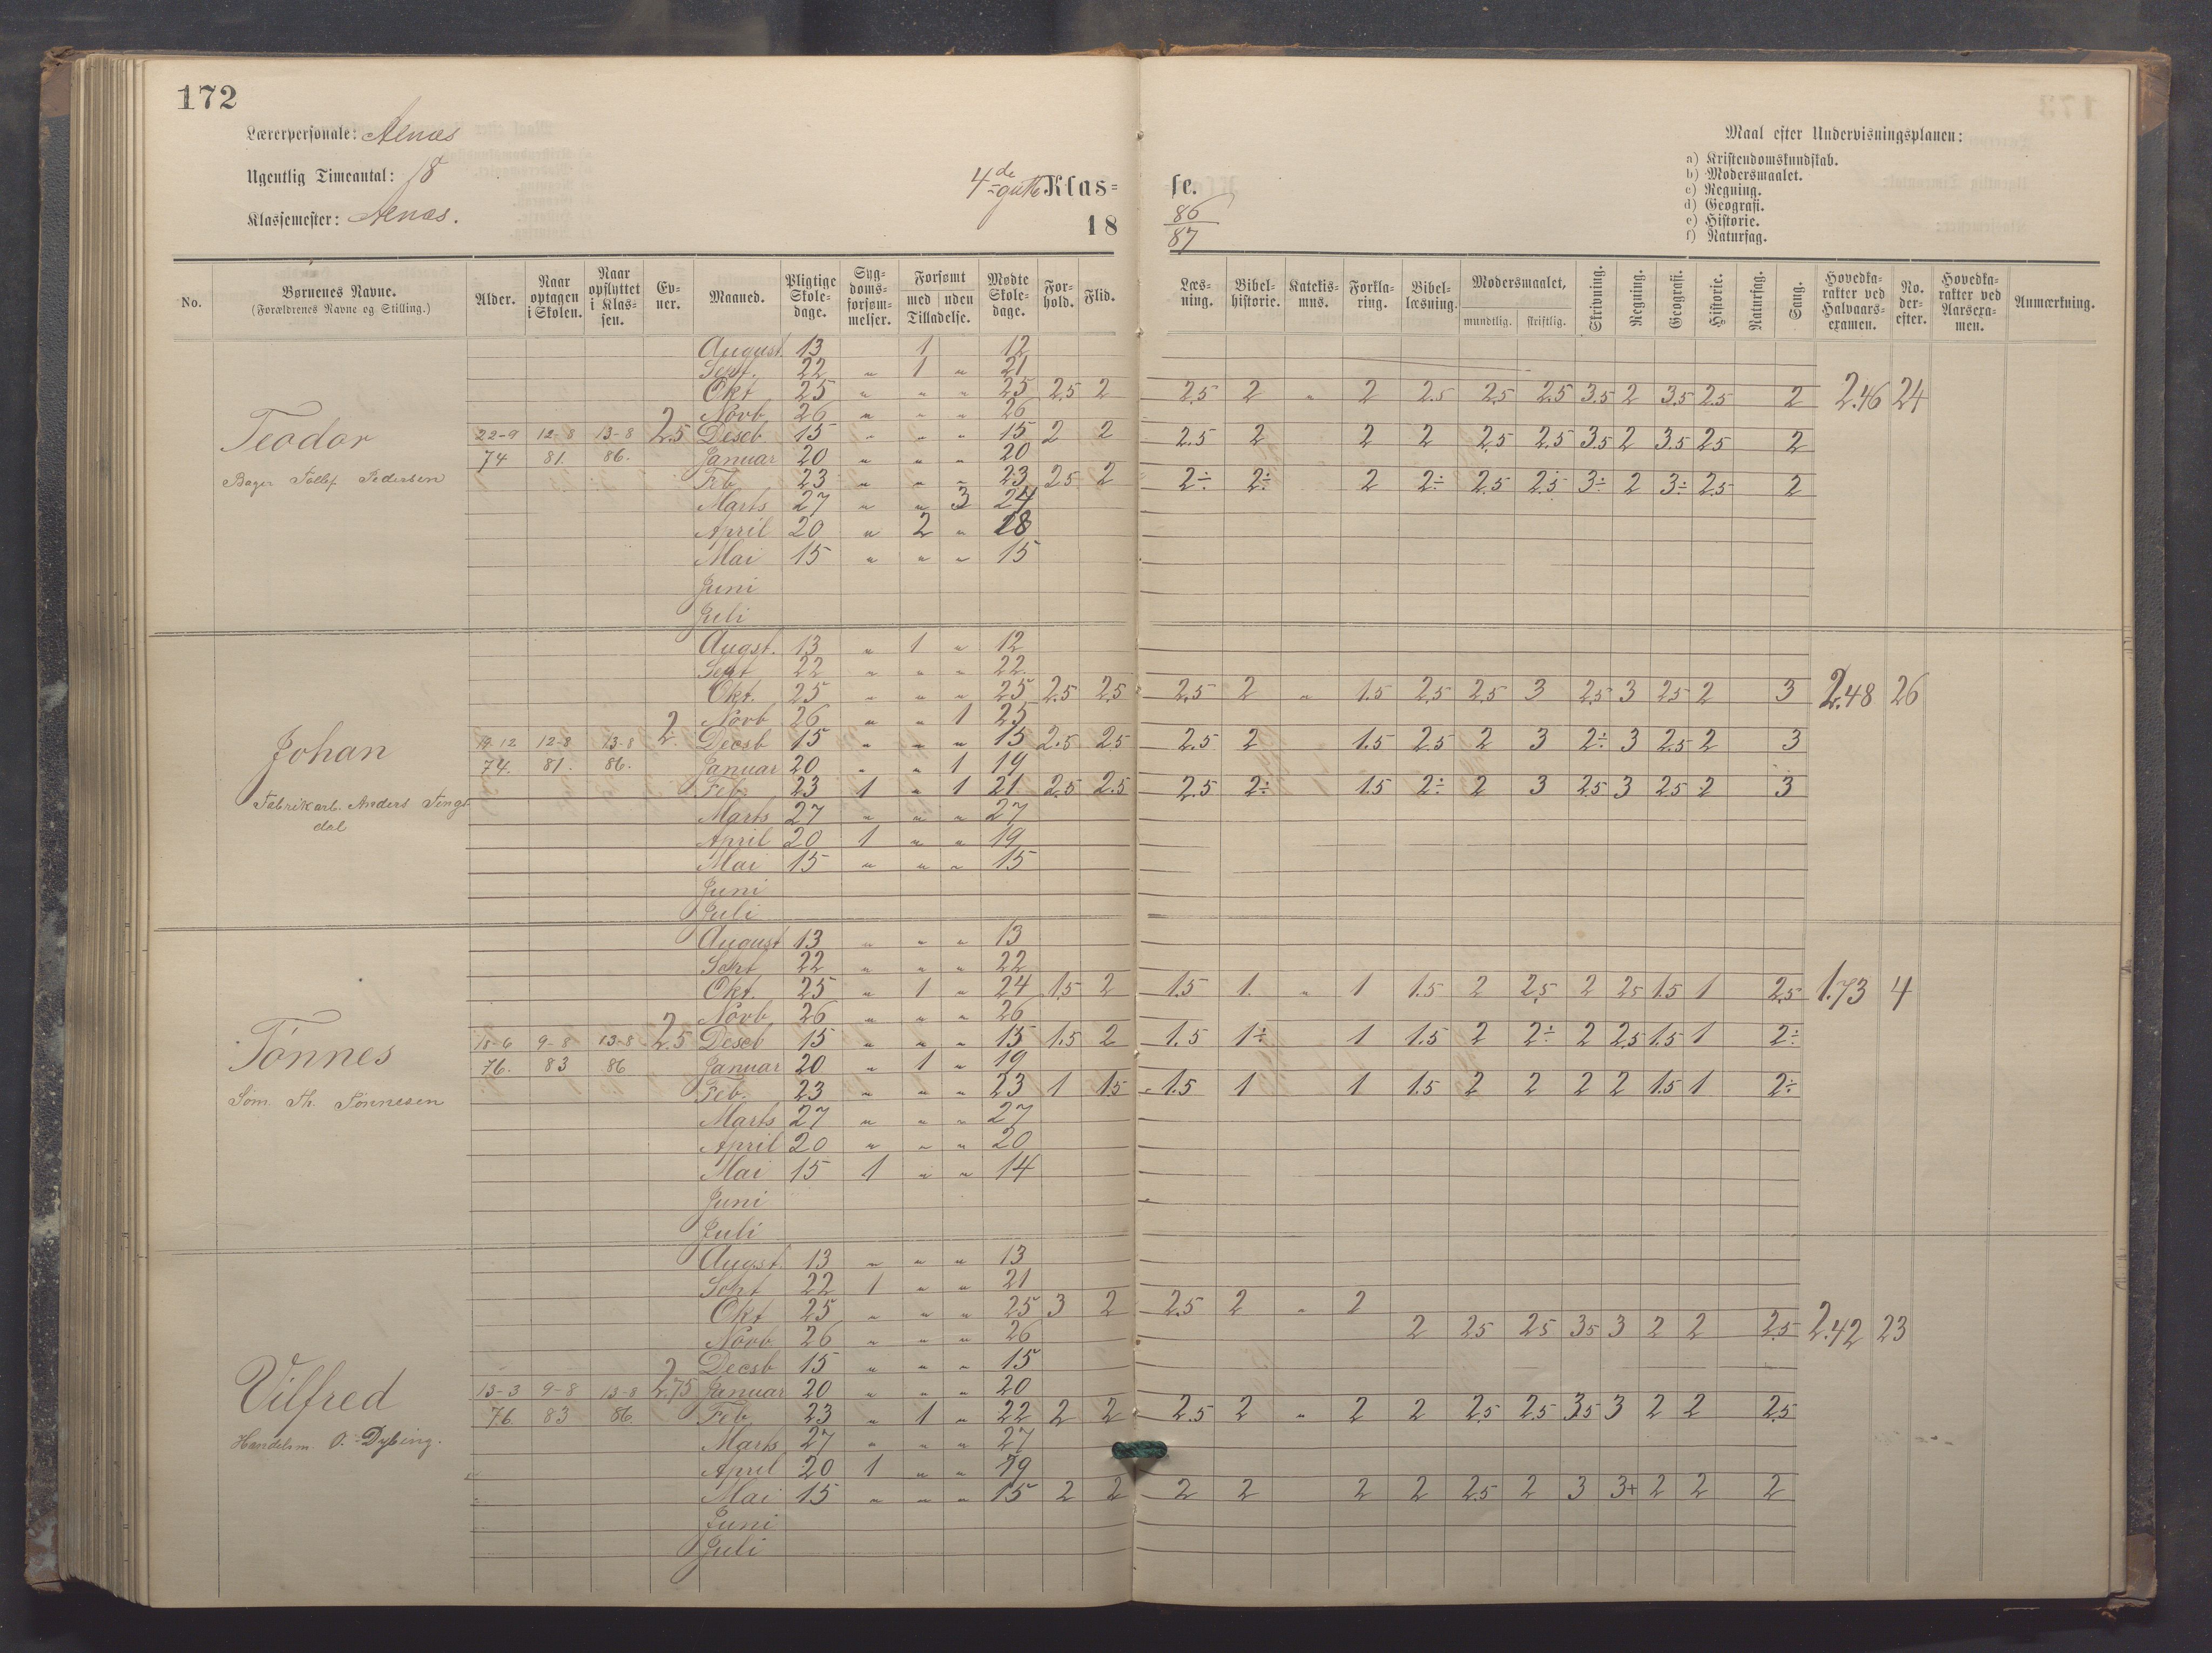 172
Lærerpersonale: Aenæs
Ugentlig Timeantal: 18
Klassemester: Aenæs.
4de gutte Klas- se.
18 86/87
Maal efter Undervisningsplanen:
a) Kristendomskundskab.
b) Modersmaalet.
c) Regning.
d) Geografi.
e) Historie.
f) Naturfag.
No. Børnenes Navne. (Forældrenes Navne og Stilling.) Alder. Naar optagen i Skolen. Naar opflyttet i Klassen. Evner. Maaned. Pligtige Skoledage. Sygdomsforsømmelser. Forsømt med uden Tilladelse. Mødte Skoledage. Forhold. Flid. Læsning. Bibelhistorie. Katekismus. Forklaring. Bibellæsning. Modersmaalet, mundtlig. skriftlig. Skrivning. Regning. Geografi. Historie. Naturfag. Sang. Hovedkarakter ved Halvaarsexamen. No. derefter. Hovedkarakter ved Aarsexamen. Anmærkning.
Teodor
Bager Tollef Pedersen
22-9 12-8 13-8 2.5
74 81. 86.
August 13 1 12
Sept. 22 " 1 " 21
Okt 25 " " " 25 2.5 2 2.5 2 " 2 2.5 2.5 2.5 3.5 2 3.5 2.5 2 2.46 24
Novb 26 " " " 26
Deseb 15 " " " 15 2 2 2.5 2 2 2 2.5 2.5 3.5 2 3.5 2.5 2
Januar 20 " " " 20
Feb 23 " " " 23 2.5 2 2÷ 2÷ 2 2÷ 2.5 2.5 3÷ 2 3÷ 2.5 2
Marts 27 " " 3 24
April 20 " 2 " 18
Mai 15 " " " 15
Juni
Juli
Johan
Fabrikarb. Anders Tengs-
dal
19-12 12-8 13-8 2.
74. 81. 86.
Augst. 13 " 1 " 12
Sept 22 " " " 22.
Okt. 25 " " " 25 2.5 2.5 2.5 2 " 1.5 2.5 2.5 3 2.5 3 2.5 2 3 2.48 26
Novb 26 " " 1 25
Decsb 15 " " " 15 2.5 2.5 2.5 2 1.5 2.5 2 3 2÷ 3 2.5 2 3
Januar 20 " " 1 19
Feb. 23 1 " 1 21 2.5 2.5 2.5 2÷ 1.5 2÷ 2 3 2.5 3 2.5 2 3
Marts 27 " " " 27
April 20 1 " " 19
Mai 15 " " " 15
Juni
Juli
Tønnes
Søm. Th. Tønnesen
18-6 9-8 13-8 2.5
76. 83 86
August 13 " " " 13
Sept 22 " " " 22
Okt. 25 " 1 " 24 1.5 2 1.5 1. " 1 1.5 2 2.5 2 2.5 1.5 1 2.5 1.73 4
Novb 26 " " " 26
Deseb 15 " " " 15 1.5 2 1.5 1÷ 1 1.5 2 2÷ 2 2.5 1.5 1 2÷
Januar 20 " 1 " 19
Feb. 23 " " " 23 1 1.5 1.5 1 1 1.5 2 2 2 2 1.5 1 2÷
Marts 27 " " " 27
April 20 " " " 20
Mai 15 1 " " 14
Juni
Juli
Vilfred
Handelsm. O. Dybing.
13-3 9-8 13-8 2.75
76. 83 86.
Augst. 13 " " " 13
Sept 22 1 " " 21
Okt 25 " " " 25 3 2 2.5 2 " 2
Novb 26 " " " 26 2 2.5 2.5 3.5 3 2 2 2.5 2.42 23
Decsb 15 " " " 15
Januar 20 " " " 20
Feb 23 " 1 " 22 2 2 2.5 2 " 2 2 2.5 2.5 3.5 3 2 2 2.5
Marts 27 " " " 27
April 20 1 " " 19
Mai 15 " " " 15 2 2 2 2 2 2 2.5 2 3 3+ 2 2 2
Juni
Juli